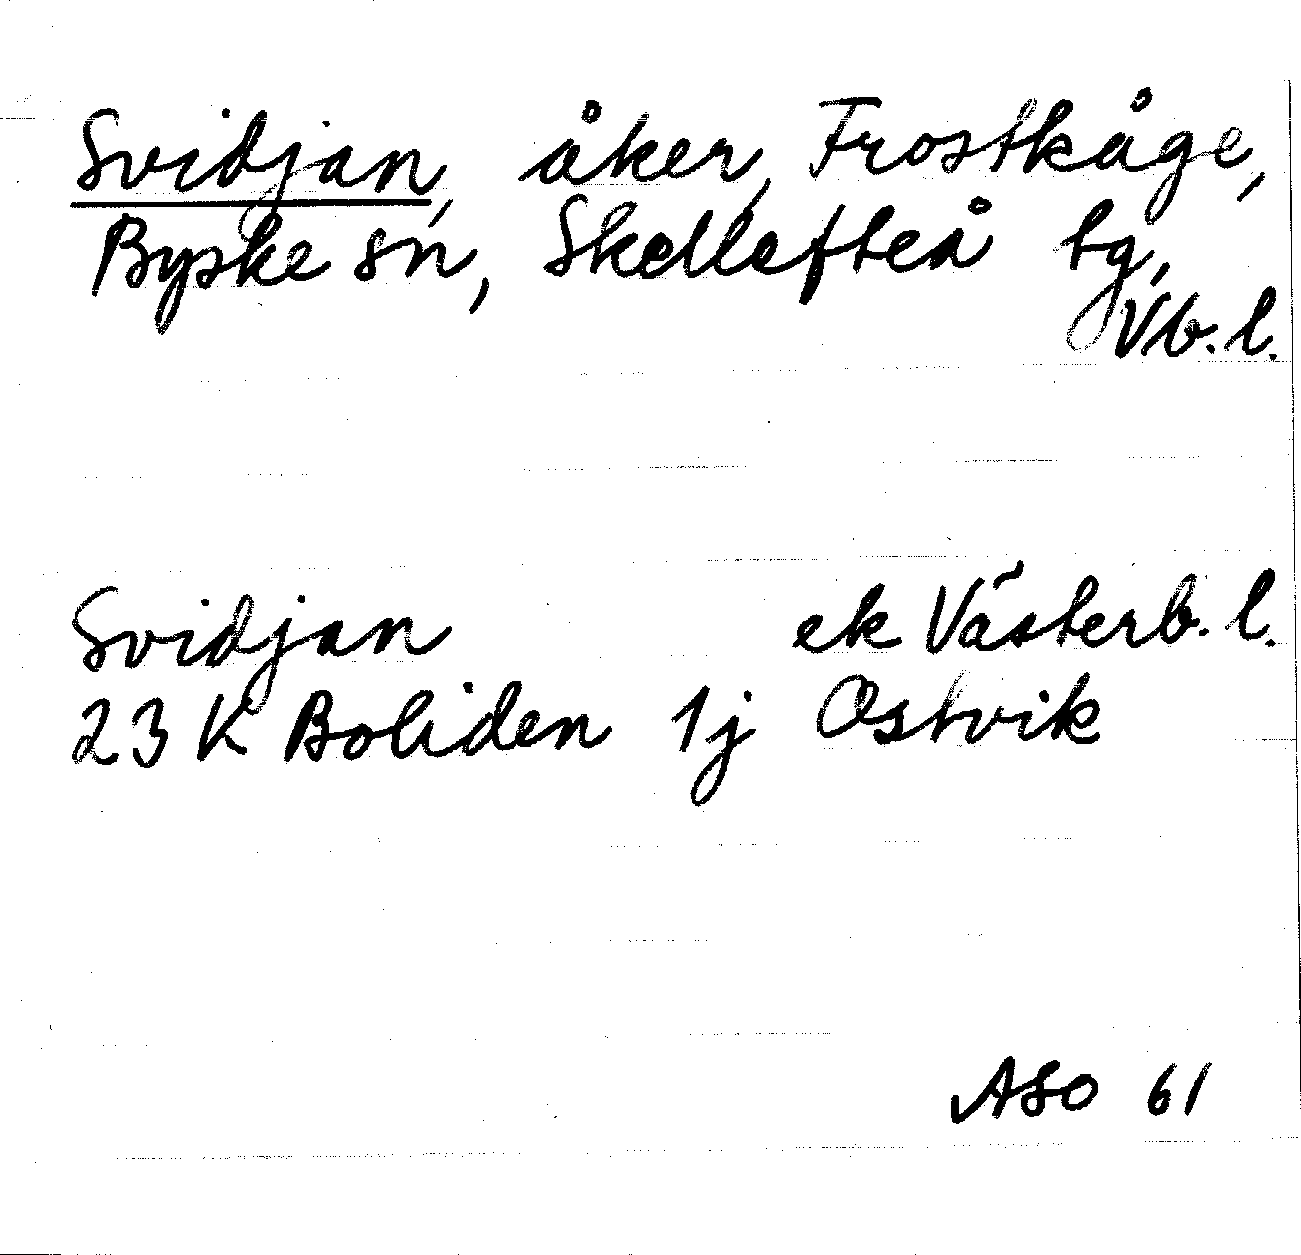 Svidjan, åker, Frostkåge,
Byske sn, Skellefteå tg,
Vb. l.
Svidjan ek Västerb. l.
23 K Boliden 1j Ostvik
ASO 61